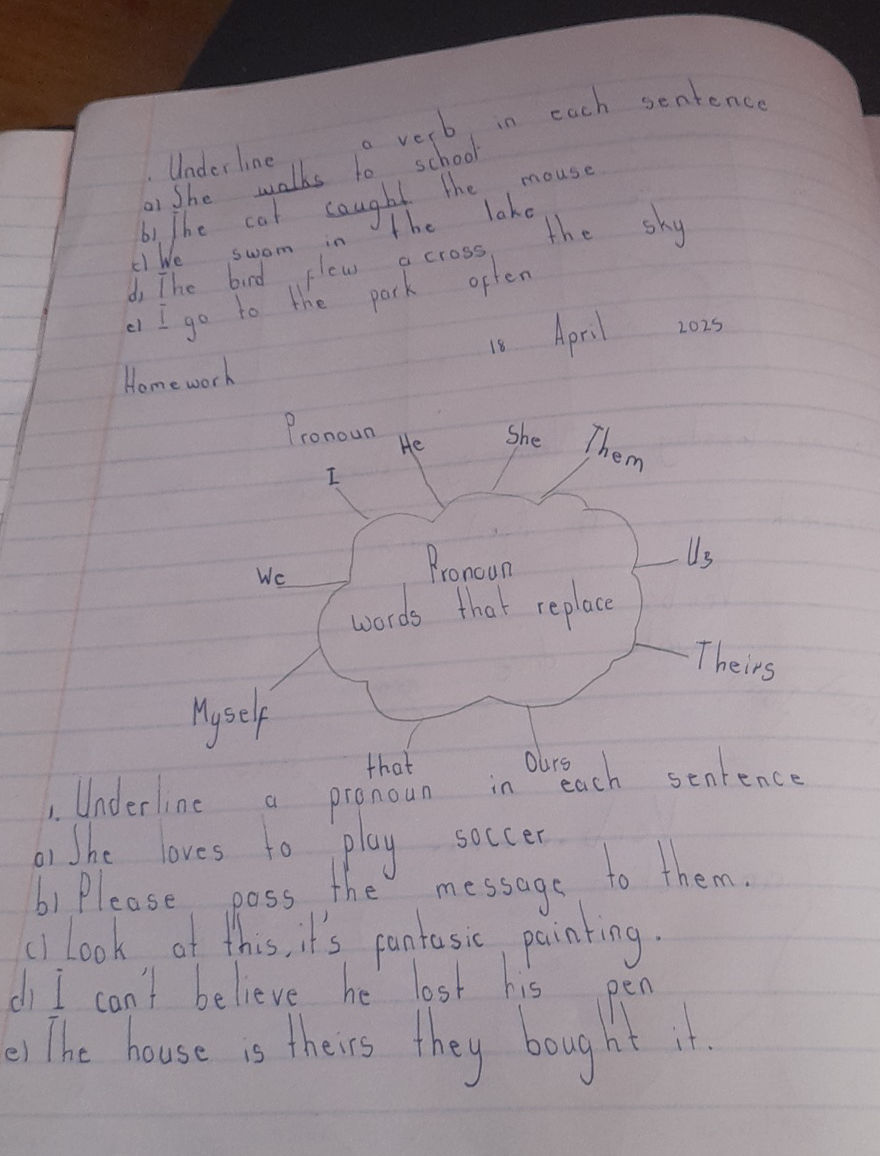 . Underline a verb in each sentence
a) She walks to school
b) The cat caught the mouse
c) We swam in the lake
d) The bird flew across the sky
e) I go to the park often
18 April 2025
Homework
Pronoun
He
She
Them
I
We
Pronoun
words that replace
Us
Theirs
Myself
that
Ours
1. Underline a pronoun in each sentence
a) She loves to play soccer
b) Please pass the message to them.
c) Look at this, it's fantasic painting.
d) I can't believe he lost his pen
e) The house is theirs they bought it.